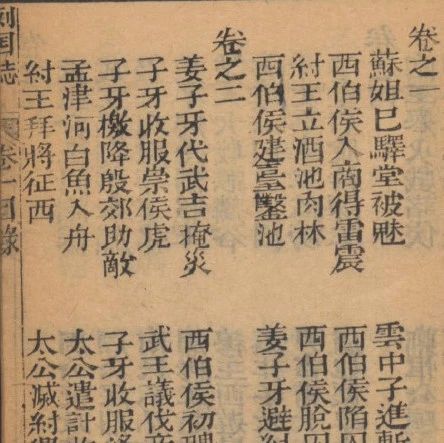 卷之一
蘇妲已驛堂被魅　雲中子進
西伯侯入商得雷震　西伯侯陷
紂王立酒池肉林　西伯侯脫
西伯侯建臺鑿池　姜子牙避
卷之二
姜子牙代武吉掩災　西伯侯初
子牙收服崇侯虎　武王議伐
子牙檄降殷郊助敵　子牙收服
孟津河白魚入舟　太公遣計
紂王拜將征西　太公滅紂
列国誌　卷一目錄